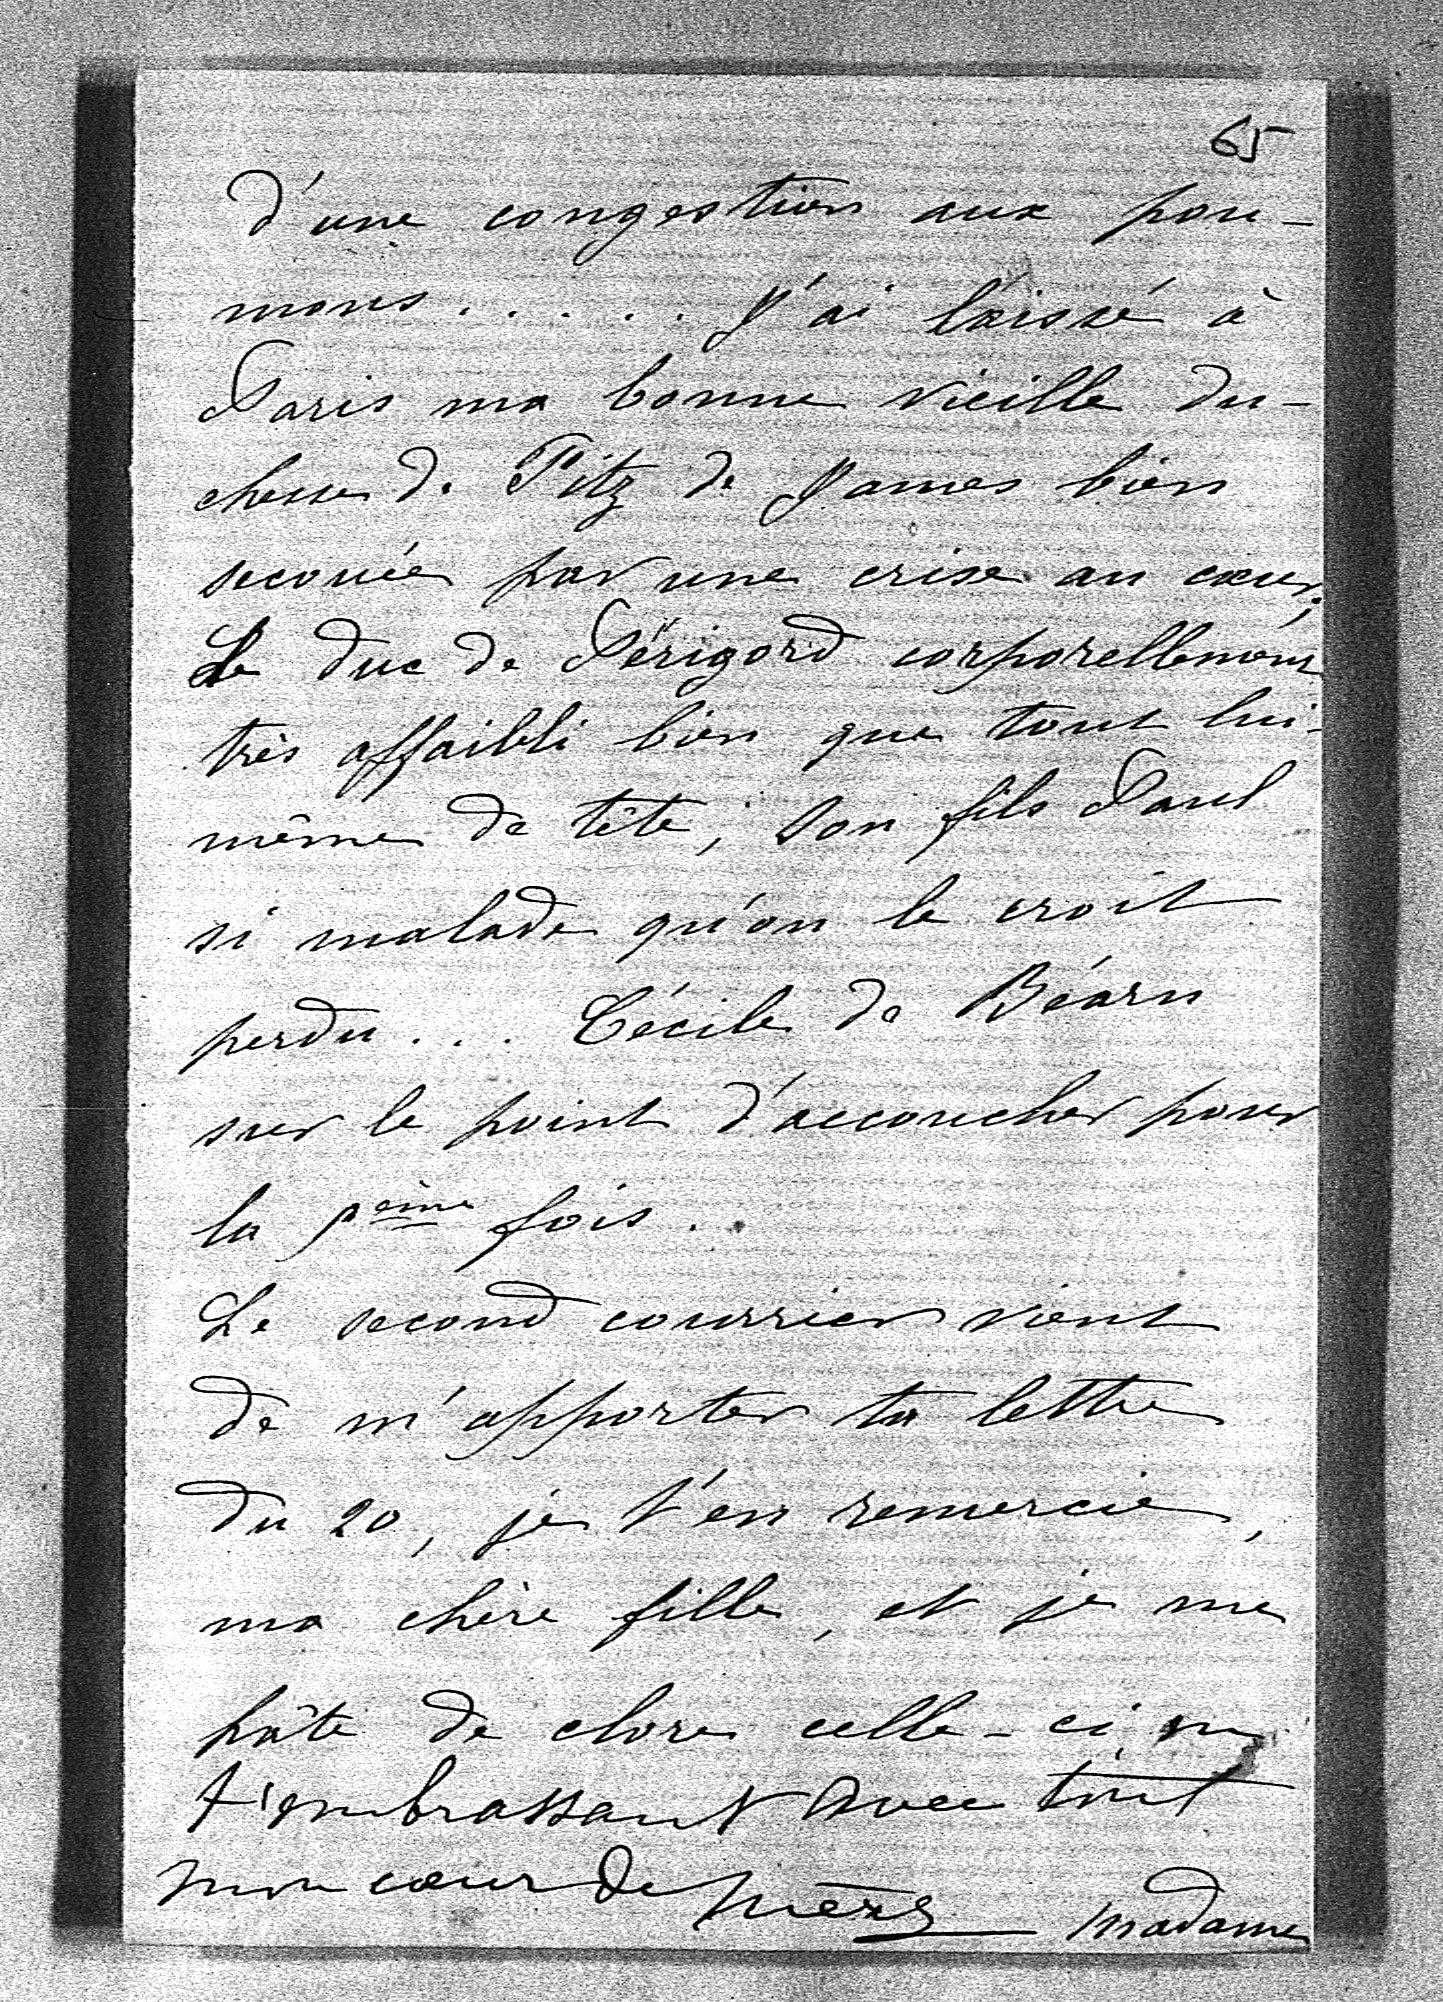 65
d'une congestion aux pou-
mons..... J'ai laissé à
Paris ma bonne vieille du-
chesse de Fitz de James bien
secouée par une crise au cœur;
Le duc de Périgord corporellement
très affaibli bien que tout lui-
même de tête; son fils Paul
si malade qu'on le croit
perdu... Cécile de Béarn
sur le point d'accoucher pour
la eme fois.
Le second courrier vient
de m'apporter ta lettre
du 20, je t'en remercie,
ma chère fille, et je me
hâte de clore celle-ci en
t'embrassant avec tout
mon cœur de mère
Madame